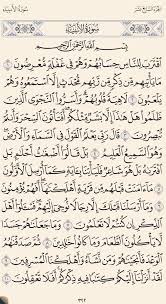 الجزء السابع عشر سورة الأنبياء
سُورَةُ الأَنبِيَاءِ
بِسْمِ ٱللَّهِ ٱلرَّحْمَٰنِ ٱلرَّحِيمِ
ٱقْتَرَبَ لِلنَّاسِ حِسَابُهُمْ وَهُمْ فِى غَفْلَةٍ مُّعْرِضُونَ ١
مَا يَأْتِيهِم مِّن ذِكْرٍ مِّن رَّبِّهِم مُّحْدَثٍ إِلَّا ٱسْتَمَعُوهُ وَهُمْ
يَلْعَبُونَ ٢ لَاهِيَةً قُلُوبُهُمْ وَأَسَرُّوا۟ ٱلنَّجْوَى ٱلَّذِينَ
ظَلَمُوا۟ هَلْ هَٰذَآ إِلَّا بَشَرٌ مِّثْلُكُمْ أَفَتَأْتُونَ ٱلسِّحْرَ وَأَنتُمْ
تُبْصِرُونَ ٣ قَالَ رَبِّى يَعْلَمُ ٱلْقَوْلَ فِى ٱلسَّمَآءِ وَٱلْأَرْضِ
وَهُوَ ٱلسَّمِيعُ ٱلْعَلِيمُ ٤ بَلْ قَالُوٓا۟ أَضْغَٰثُ أَحْلَٰمٍۭ بَلِ
ٱفْتَرَىٰهُ بَلْ هُوَ شَاعِرٌ فَلْيَأْتِنَا بِـَٔايَةٍ كَمَآ أُرْسِلَ ٱلْأَوَّلُونَ ٥
مَآ ءَامَنَتْ قَبْلَهُم مِّن قَرْيَةٍ أَهْلَكْنَٰهَآ أَفَهُمْ يُؤْمِنُونَ ٦
وَمَآ أَرْسَلْنَا قَبْلَكَ إِلَّا رِجَالًا نُّوحِىٓ إِلَيْهِمْ فَسْـَٔلُوٓا۟ أَهْلَ ٱلذِّكْرِ
إِن كُنتُمْ لَا تَعْلَمُونَ ٧ وَمَا جَعَلْنَٰهُمْ جَسَدًا
لَّا يَأْكُلُونَ ٱلطَّعَامَ وَمَا كَانُوا۟ خَٰلِدِينَ ٨ ثُمَّ صَدَقْنَٰهُمُ
ٱلْوَعْدَ فَأَنجَيْنَٰهُمْ وَمَن نَّشَآءُ وَأَهْلَكْنَا ٱلْمُسْرِفِينَ ٩
لَقَدْ أَنزَلْنَآ إِلَيْكُمْ كِتَٰبًا فِيهِ ذِكْرُكُمْ أَفَلَا تَعْقِلُونَ ١٠
٣٢٢